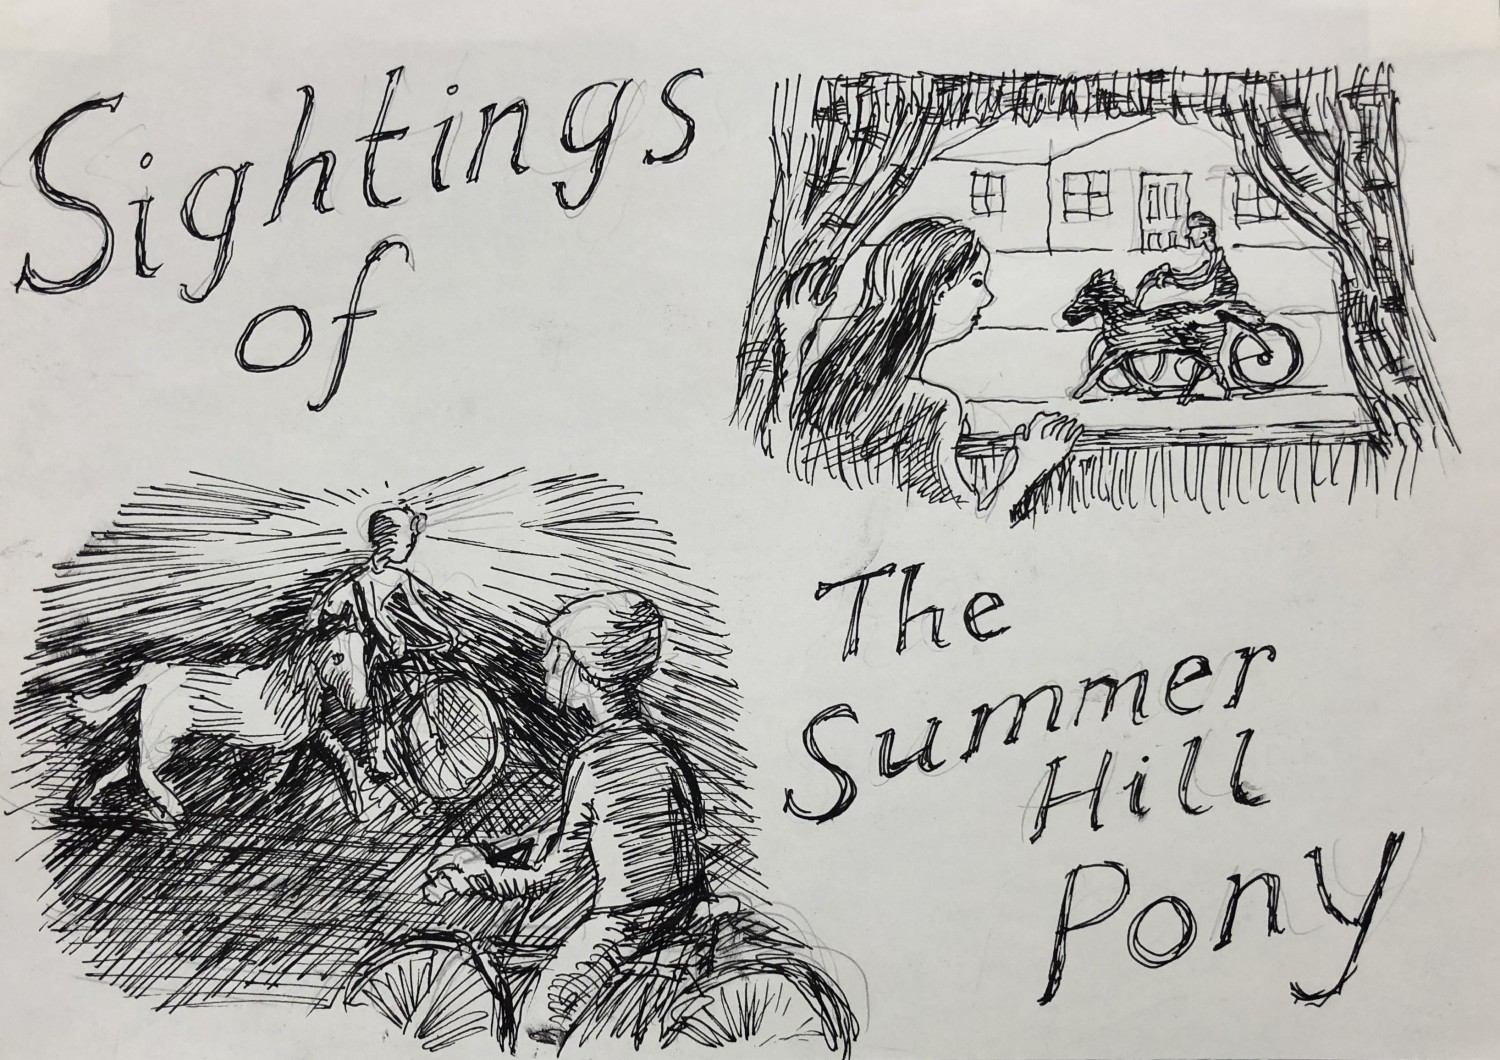 Sightings
of
The
Summer
Hill
Pony